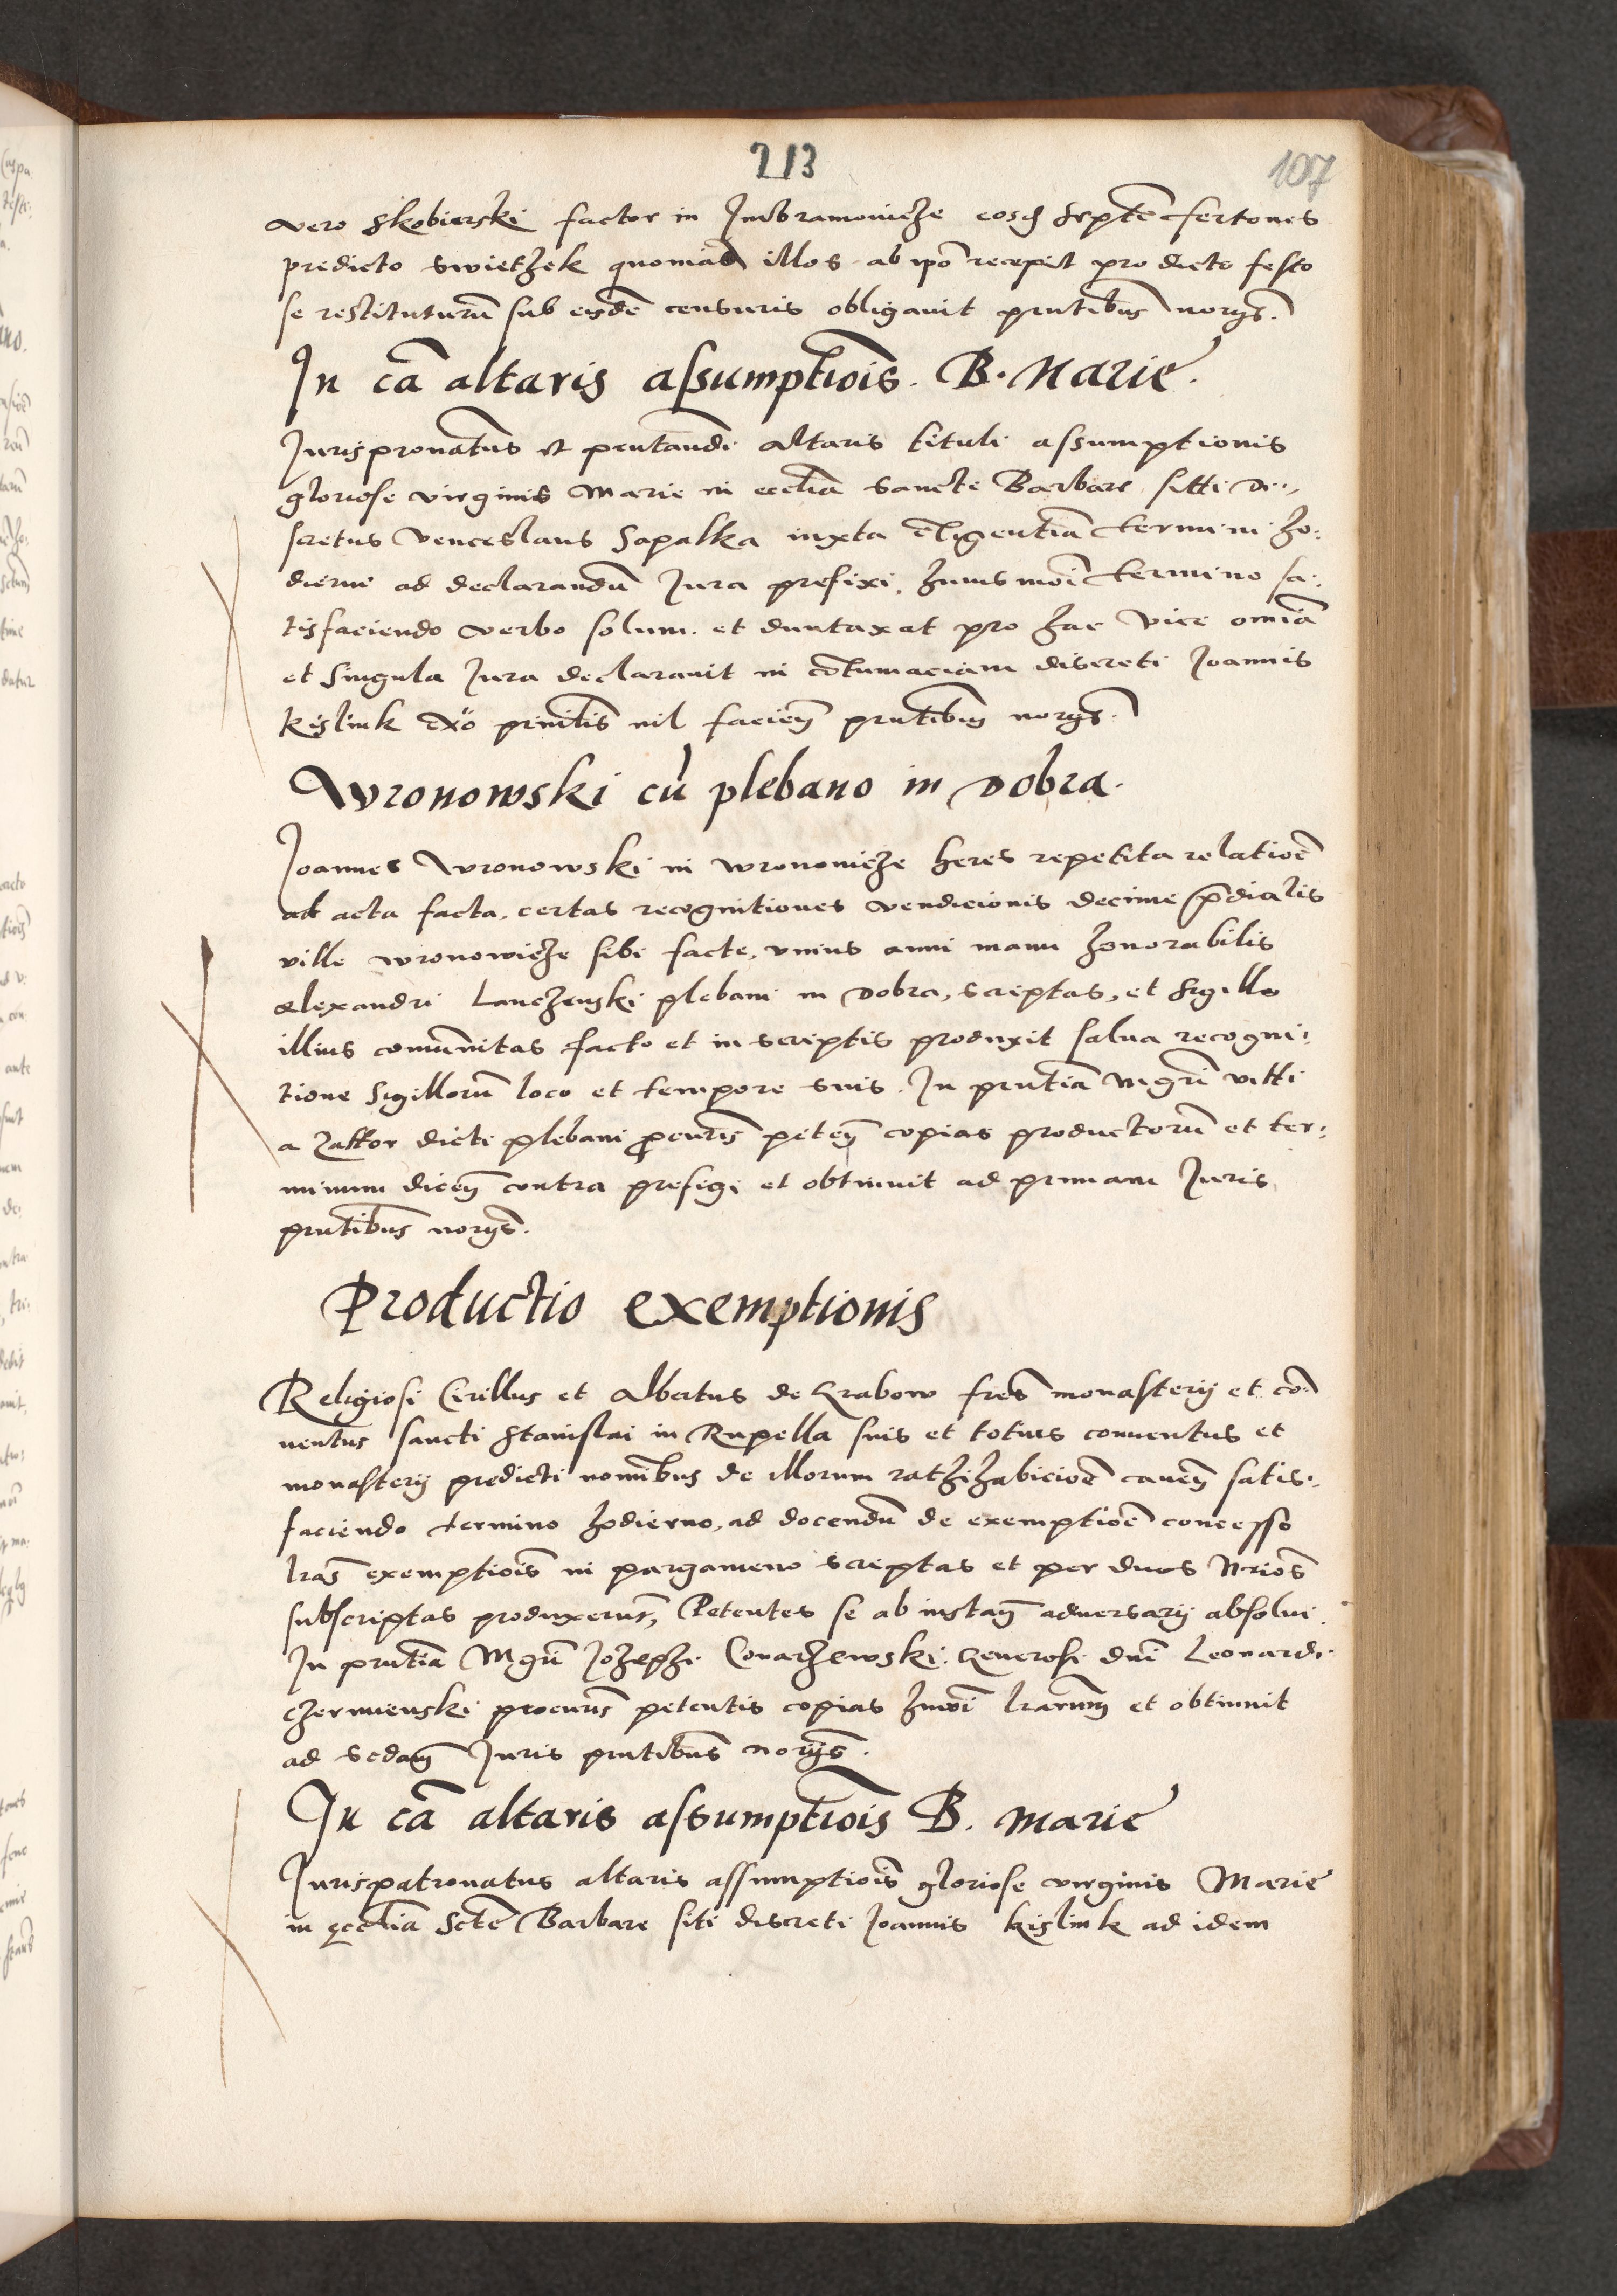 213
107
vero Skobierski factor in Imbramowicze eosd septe fertones
predicto Swietzek quoniad illos ab ipo recepit pro dicto festo
se restiturū sub eisdē censuris obligavit pntibus norijs.
In cā altaris assumptiois. B. Marie.
Jurispronatus et pentandi altaris tituli assumptionis
gloriose virginis Marie in ecclia sancte Barbare sitti di-
scretus Venceslaus Sapalka iuxta exigentiā termini ho:
dierni ad declarandū Jura prefixi, huiusmoi termino sa:
tisfaciendo verbo solum et duntaxat pro hac vice omīa
et singula Jura declarauit in cōtumaciam discreti Joannis
Kislink exō pnilis nil facien pntibus norijs.
Wronowski cū plebano in Dobra.
Joannes Wronowski in Wronowicze heres repetita relatioē
ad acta facta, certas recognitiones vendicionis decime pdialis
ville Wronowicze sibi facte, vnius anni manu honorabilis
Alexandri Lanczenski plebani in Dobra, scriptas, et sigillo
illius comunitas facto et in scriptis produxit salua recogni:
tione sigillorū loco et tempore suis. In pntia Mgri Vitti
a Zattor dicti plebani procuris peten copias productorū et ter:
minum dicen contra prefigi et obtinuit ad primam Juris
pntibus norijs.
Productio exemptionis
Religiosi Cirillus et Albertus de Grabow fres monasterij et con
uentus sancti Stanislai in Rupella suis et totius conuentus et
monasterij predicti nomibus de illorum ratihabicioē cauen satis:
faciendo termino hodierno, ad docendū de exemptioē concesso
lras exemptiois in pargameno scriptas et per duos Nrios
subscriptas produxerut, Petentes se ab instan aduersarij absolui
In pntia Mgri Jozephi Conarzewski Generosi dni Leonardi
Czermienski procuris petentis copias huiōi lrarum et obtinuit
ad scdam Juris pntibus norijs.
In cā altaris assumptiois B. Marie
Jurispatronatus altaris assumptiois gloriose virginis Marie
in ecclia Scte Barbare siti discreti Joannis Kislink ad idem